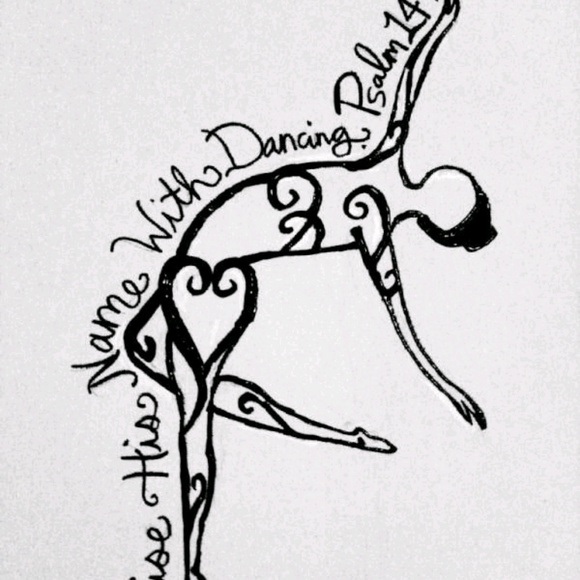 His Name With Dancing Psalm 14